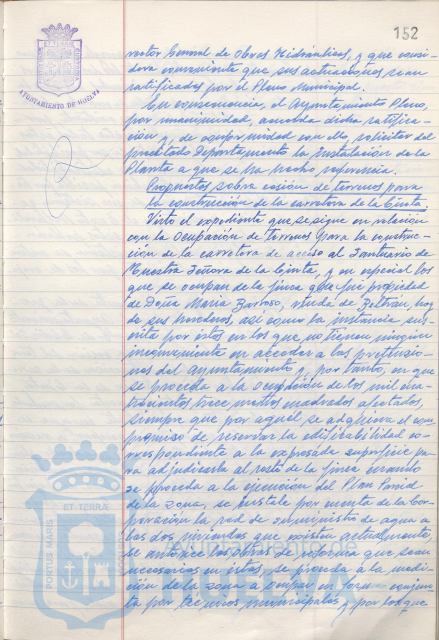 152
AYUNTAMIENTO DE HUELVA
rector General de Obras Hidráulicas, y que consi-
dera conveniente que sus actuaciones sean
ratificadas por el Pleno Municipal.
En consecuencia, el Ayuntamiento Pleno,
por unanimidad, acuerda dicha ratifica-
ción y, de conformidad con ello, solicitar del
precitado Departamento la instalación de la
Planta a que se ha hecho referencia.
Propuestas sobre cesión de terrenos para
la construcción de la carretera de la Cinta.
Visto el expediente que se sigue en relación
con la ocupación de terrenos para la construc-
ción de la carretera de acceso al Santuario de
Nuestra Señora de la Cinta, y en especial los
que se ocupan de la finca que fué propiedad
de Doña María Barroso, viuda de Beltrán, hoy
de sus herederos, así como la instancia sus-
crita por éstos en los que no tienen ningún
inconveniente en acceder a las pretensio-
nes del Ayuntamiento y, por tanto, en que
se proceda a la ocupación de los mil cua-
trocientos trece metros cuadrados afectados,
siempre que por aquel se adquiera el com-
promiso de reservar la edificabilidad co-
rrespondiente a la expresada superficie pa-
ra adjudicarla al resto de la finca cuando
se proceda a la ejecución del Plan Parcial
de la zona, se instale por cuenta de la Cor-
poración la red de suministro de agua a
las dos viviendas que existen actualmente,
se autorice las obras de reforma que sean
necesarias en éstas, se proceda a la medi-
ción de la zona a ocupar en forma conjun-
ta por técnicos municipales y por los que
ET TERRAE
PORTUS MARIS
HUELVA